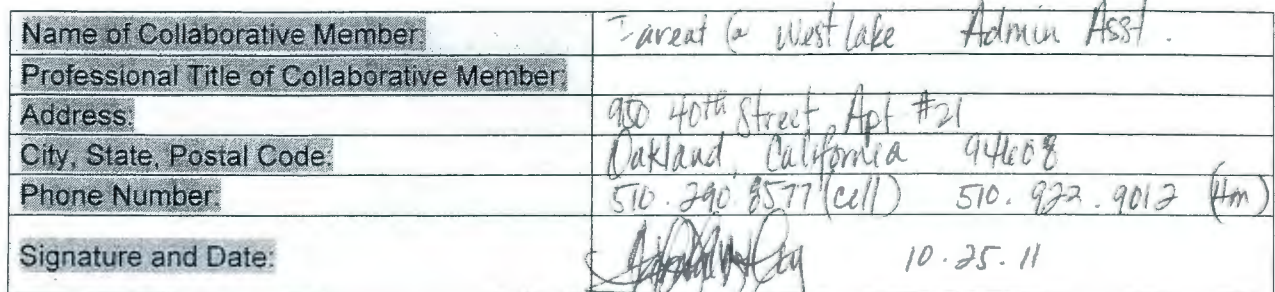 Name of Collaborative Member: Parent @ West lake Admin Asst.
Professional Title of Collaborative Member:
Address: 950 40th Street, Apt #21
City, State, Postal Code: Oakland, California 94608
Phone Number: 510.290.8577 (cell) 510.922.9012 (Hm)
Signature and Date: 10.25.11